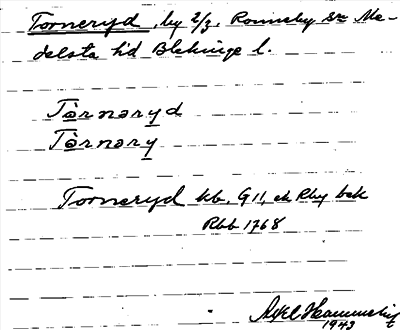 Torneryd, by 2/3, Ronneby sn Me-
delsta hd Blekinge l.
Tòrnəryd
Tòrnəry
Torneryd kb, G11, ek Rby bek
Rbb 1768
Axel
1943